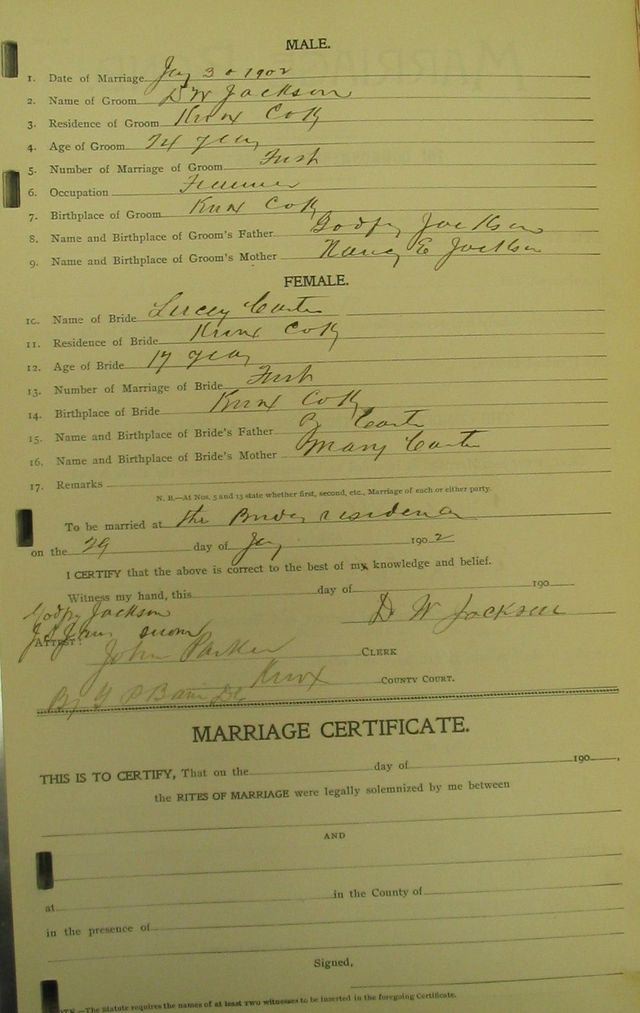 MALE.
1. Date of Marriage Jay 30 1902
2. Name of Groom D W Jackson
3. Residence of Groom Knox Co Ky
4. Age of Groom 24 years
5. Number of Marriage of Groom First
6. Occupation Farmer
7. Birthplace of Groom Knox Co Ky
8. Name and Birthplace of Groom's Father Godfry Jackson
9. Name and Birthplace of Groom's Mother Nancy E Jackson
FEMALE.
10. Name of Bride Carter
11. Residence of Bride Knox Co Ky
12. Age of Bride 17 years
13. Number of Marriage of Bride First
14. Birthplace of Bride Knox Co Ky
15. Name and Birthplace of Bride's Father Carter
16. Name and Birthplace of Bride's Mother Mary Carter
17. Remarks
N. B.—At Nos. 5 and 13 state whether first, second, etc., Marriage of each or either party.
To be married at the Brides residence
on the 29 day of Jay 1902
I CERTIFY that the above is correct to the best of my knowledge and belief.
Witness my hand, this day of 190
Godfry Jackson
D W Jackson
sworn
ATTEST:
John Parker CLERK
Knox COUNTY COURT.
By
MARRIAGE CERTIFICATE.
THIS IS TO CERTIFY, That on the day of 190 ,
the RITES OF MARRIAGE were legally solemnized by me between
AND
at in the County of
in the presence of
Signed,
NOTE.—The Statute requires the names of at least two witnesses to be inserted in the foregoing Certificate.